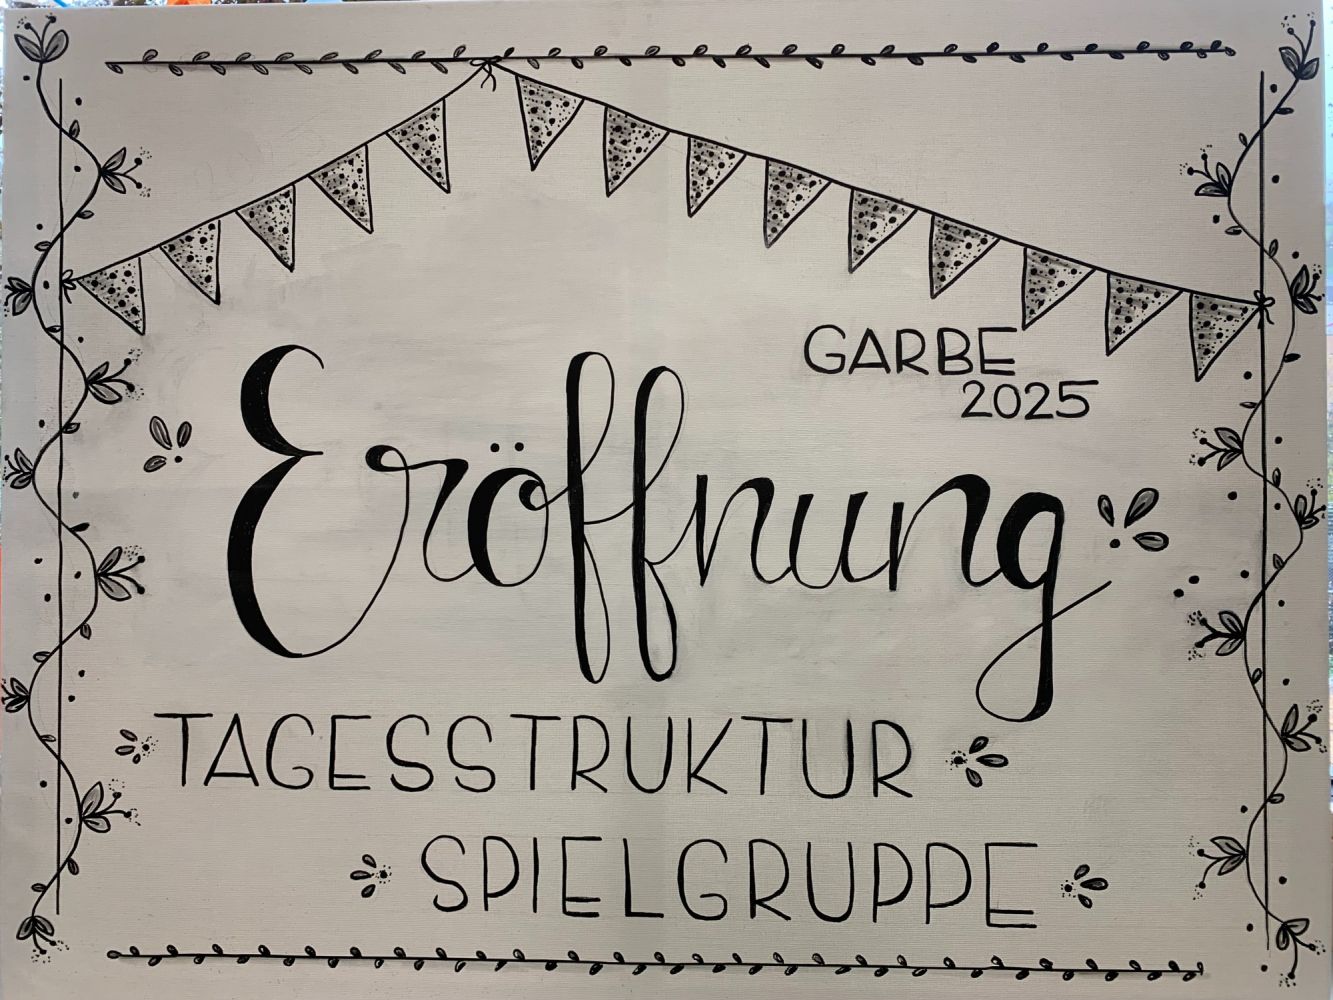 GARBE
2025
Eröffnung
TAGESSTRUKTUR
SPIELGRUPPE